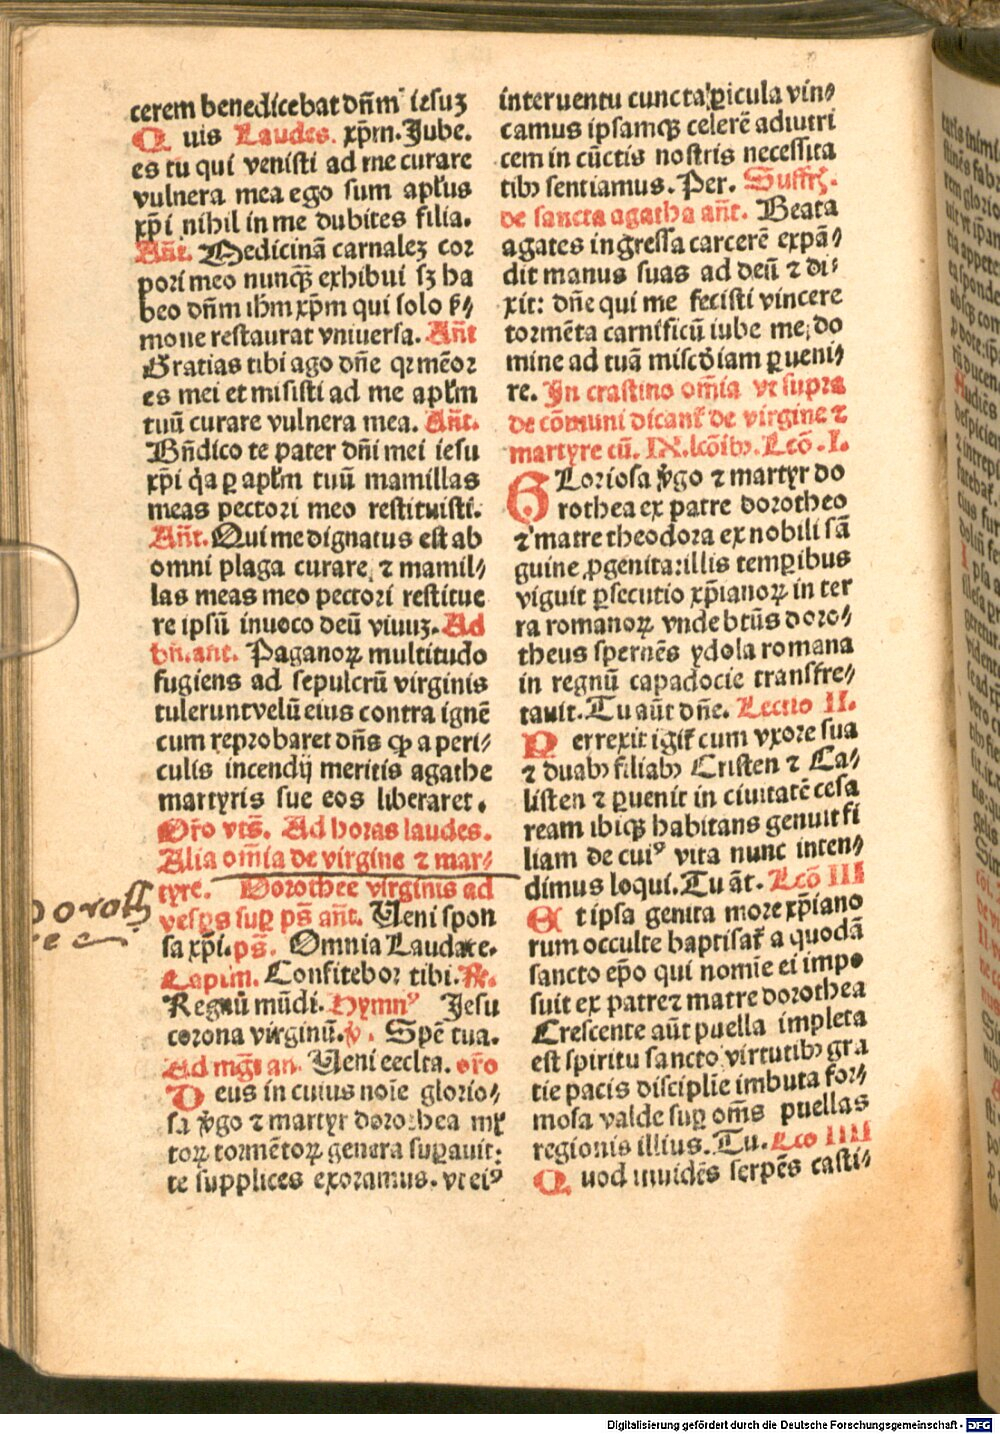 cerem benedicebat dñm iesuʒ
Quis Laudes. xp̄m. Jube.
es tu qui venisti ad me curare
vulnera mea ego sum apl̄us
xp̄i nihil in me dubites filia.
Añt. Medicinā carnaleʒ cor
pori meo nunqʒ̄ exhibui sʒ ha
beo dñm ihm̄ xp̄m qui solo ẜ-
mone restaurat vniuersa. Añt
Gratias tibi ago dñe qr mēor
es mei et misisti ad me apl̄m
tuū curare vulnera mea. Añt.
Bn̄dico te pater dñi mei iesu
xp̄i q̇a ꝑ apl̄m tuū mamillas
meas pectori meo restituisti.
Añt. Qui me dignatus est ab
omni plaga curare, ⁊ mamil-
las meas meo pectori restitue
re ipsū inuoco deū viuuʒ. Ad
bn̄. ant. Paganoꝝ multitudo
fugiens ad sepulcrū virginis
tulerunt velū eius contra ignē
cum reprobaret dñs ꝙ a peri-
culis incendij meritis agathe
martyris sue eos liberaret.
Or̄o vts̄. Ad horas laudes.
Alia om̄ia de virgine ⁊ mar-
tyre. Dorothee virginis ad
vesꝑs suꝑ ps̄ añt. Ueni spon
sa xp̄i. ps̄. Omnia Laudate.
Capim. Confitebor tibi. ℟.
Regnū mūdi. Hymnꝰ Jesu
corona virginū. ℣. Spē tua.
Ad mḡt an. Ueni eccl̄ia. or̄o
Deus in cuius noīe glorio-
sa v̇go ⁊ martyr dorothea ml̄
toꝝ tormētoꝝ genera suꝑauit:
te supplices exoramus. vt eiꝰ
Doroth
ee
interuentu cuncta ꝑicula vin-
camus ipsamqʒ celerē adiutri
cem in cūctis nostris necessita
tibꝰ sentiamus. Per. Suffrꝭ.
de sancta agatha añt. Beata
agates ingressa carcerē expā-
dit manus suas ad deū ⁊ di-
xit: dñe qui me fecisti vincere
tormēta carnificū iube me, do
mine ad tuā mis̄cdiam ꝑueni-
re. In crastino om̄ia vt supra
de cōmuni dicant̄ de virgine ⁊
martyre cū. IX. lcōibꝰ. Lcō. I.
GLoriosa v̇go ⁊ martyr do
rothea ex patre dorotheo
⁊ matre theodora ex nobili sā
guine ꝓgenita: illis temꝑibus
viguit ꝑsecutio xp̄ianoꝝ in ter
ra romanoꝝ vnde btūs doro-
theus spernēs ydola romana
in regnū capadocie transfre-
tauit. Tu aūt dñe. Lectio II.
Perrexit igit̄ cum vxore sua
⁊ duabꝰ filiabꝰ Cristen ⁊ Ca-
listen ⁊ ꝑuenit in ciuitatē cesa
ream ibiqʒ habitans genuit fi
liam de cuiꝰ vita nunc inten-
dimus loqui. Tu āt. Lcō III
Et ipsa genita more xp̄iano
rum occulte baptisat̄ a quodā
sancto ep̄o qui nomīe ei impo
suit ex patre ⁊ matre dorothea
Crescente aūt puella impleta
est spiritu sancto virtutibꝰ gra
tie pacis disciplīe imbuta for-
mosa valde suꝑ om̄s puellas
regionis illius. Tu. Lco IIII
Quod inuidēs serpēs casti-
Digitalisierung gefördert durch die Deutsche Forschungsgemeinschaft - DFG